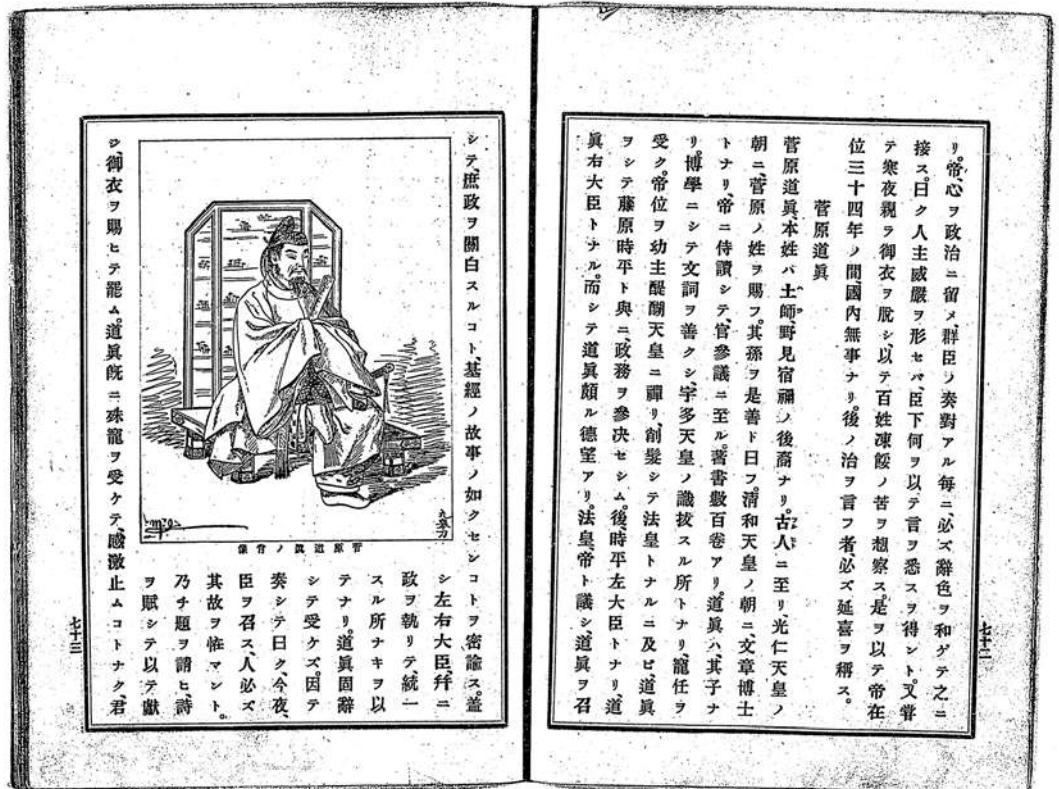 リ。帝、心ヲ政治ニ留メ、群臣ノ奏對アル每ニ、必ズ辭色ヲ和ゲテ之ニ
接ス。曰ク人主威嚴ヲ形セバ、臣下何ヲ以テ言ヲ悉スヲ得ント。又甞
テ寒夜親ラ御衣ヲ脫シ、以テ百姓凍餒ノ苦ヲ想察ス。是ヲ以テ帝在
位三十四年ノ間、國內無事ナリ。後ノ治ヲ言フ者、必ズ延喜ヲ稱ス。
菅原道眞
菅原道眞、本姓ハ土師、野見宿禰ノ後裔ナリ。古人ニ至リ光仁天皇ノ
朝ニ、菅原ノ姓ヲ賜フ。其孫ヲ是善ト曰フ。清和天皇ノ朝ニ、文章博士
トナリ、帝ニ侍讀シテ、官參議ニ至ル。著書數百卷アリ。道眞ハ、其子ナ
リ。博學ニシテ文詞ヲ善クシ、宇多天皇ノ識拔スル所トナリ、寵任ヲ
受ク。帝位ヲ幼主醍醐天皇ニ禪リ、削髮シテ法皇トナルニ及ビ、道眞
ヲシテ藤原時平ト與ニ、政務ヲ參決セシム。後、時平左大臣トナリ、道
眞右大臣トナル。而シテ道眞頗ル德望アリ。法皇、帝ト議シ、道眞ヲ召
七十二
シテ、庶政ヲ關白スルコト、基經ノ故事ノ如クセンコトヲ密諭ス。蓋
シ左右大臣、幷ニ
政ヲ執リテ統一
スル所ナキヲ以
テナリ。道眞固辭
シテ受ケズ。因テ
奏シテ曰ク、今夜、
臣ヲ召ス、人必ズ
其故ヲ恠マント。
乃チ題ヲ請ヒ、詩
ヲ賦シテ以テ獻
ジ、御衣ヲ賜ヒテ罷ム。道眞旣ニ殊寵ヲ受ケテ、感激止ムコトナク、君
菅原道眞ノ肖像
七十三